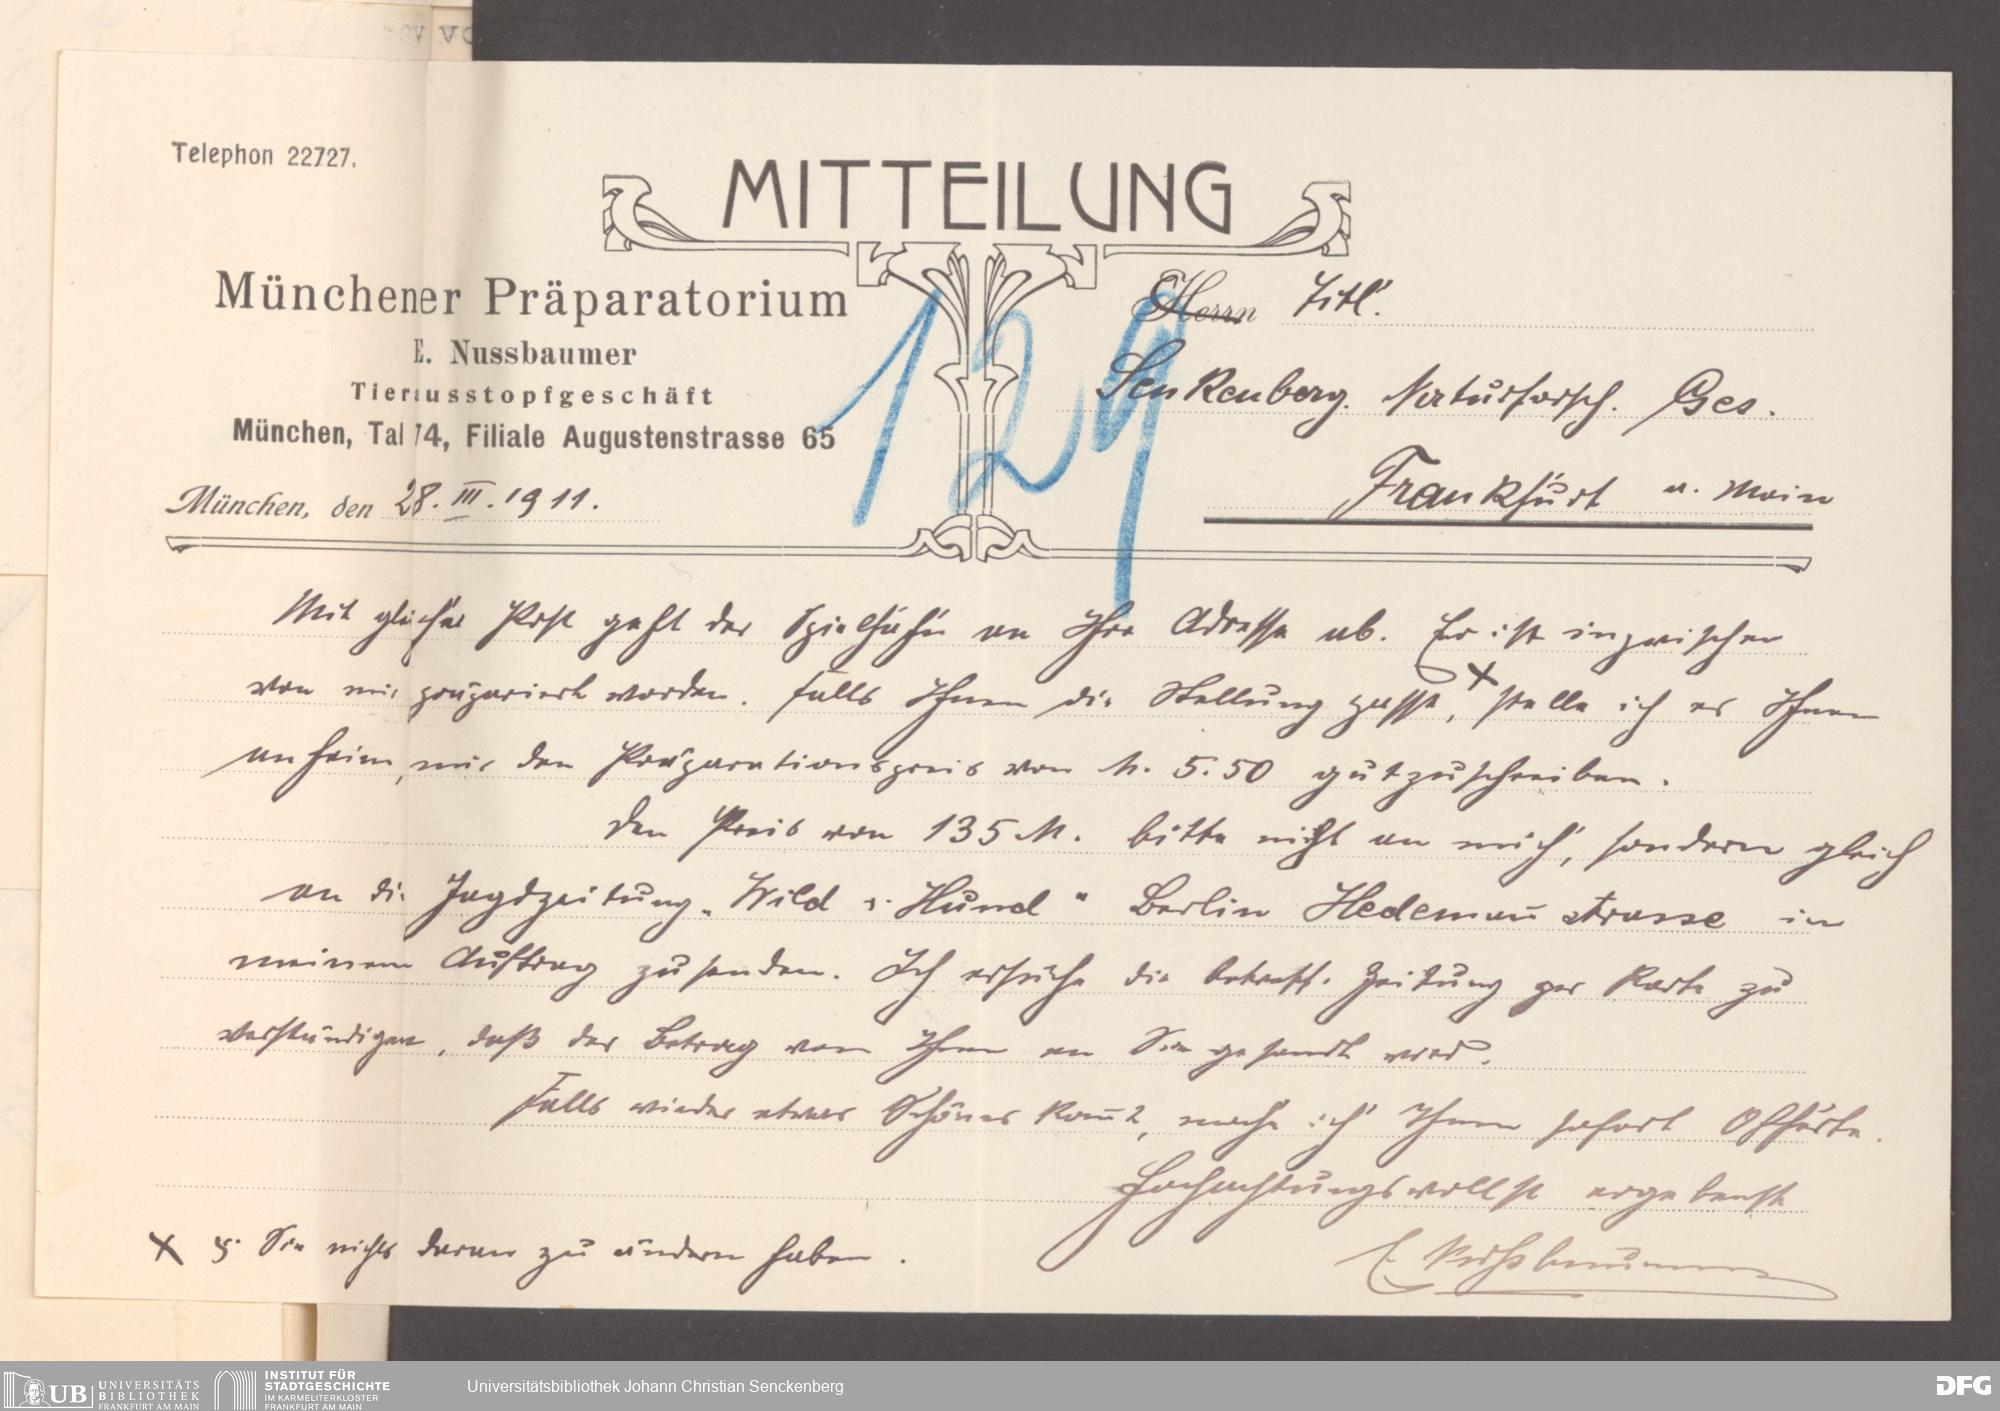 Telephon 22727.
MITTEILUNG
Münchener Präparatorium
E. Nussbaumer
Tierausstopfgeschäft
München, Tal 74, Filiale Augustenstrasse 65
München, den 28. III. 1911.
129
Herrn Titl.
Senkenberg. Naturforsch. Ges.
Frankfurt a. Main
Mit gleicher Post geht der Spielhahn an Ihre Adresse ab. Er ist inzwischen
von mir präpariert worden. Falls Ihnen die Stellung passt, x stelle ich es Ihnen
anheim, mir den Präparationspreis von M. 5.50 gutzuschreiben.
Den Preis von 135 M. bitte nicht an mich, sondern gleich
an die Jagdzeitung „Wild u. Hund" Berlin Hedemañstrasse in
meinem Auftrag zu senden. Ich ersuche die betreff. Zeitung per Karte zu
verständigen, daß der Betrag von Ihnen an Sie gesandt wird.
Falls wieder etwas Schönes kom̄t, mache ich Ihnen sofort Offerte.
Hochachtungsvollst ergebenst
E. Nußbaumer
x u. Sie nichts daran zu ändern haben.
UB UNIVERSITÄTS
BIBLIOTHEK
FRANKFURT AM MAIN
INSTITUT FÜR
STADTGESCHICHTE
IM KARMELITERKLOSTER
FRANKFURT AM MAIN
Universitätsbibliothek Johann Christian Senckenberg
DFG